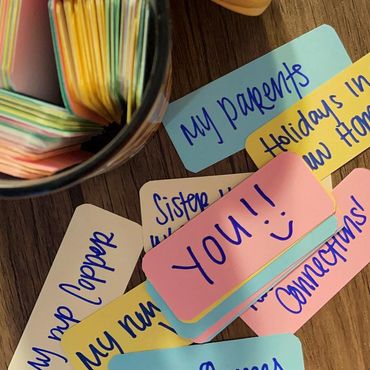 My parents
Holidays in
new Home
Sister
YOU!! :)
Connections!
My pup Copper
My run